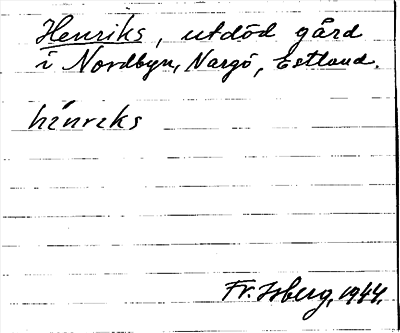 Henriks, utdöd gård
i Nordbyn, Nargö, Estland.
hènrεks
Fr. Isberg, 1944.